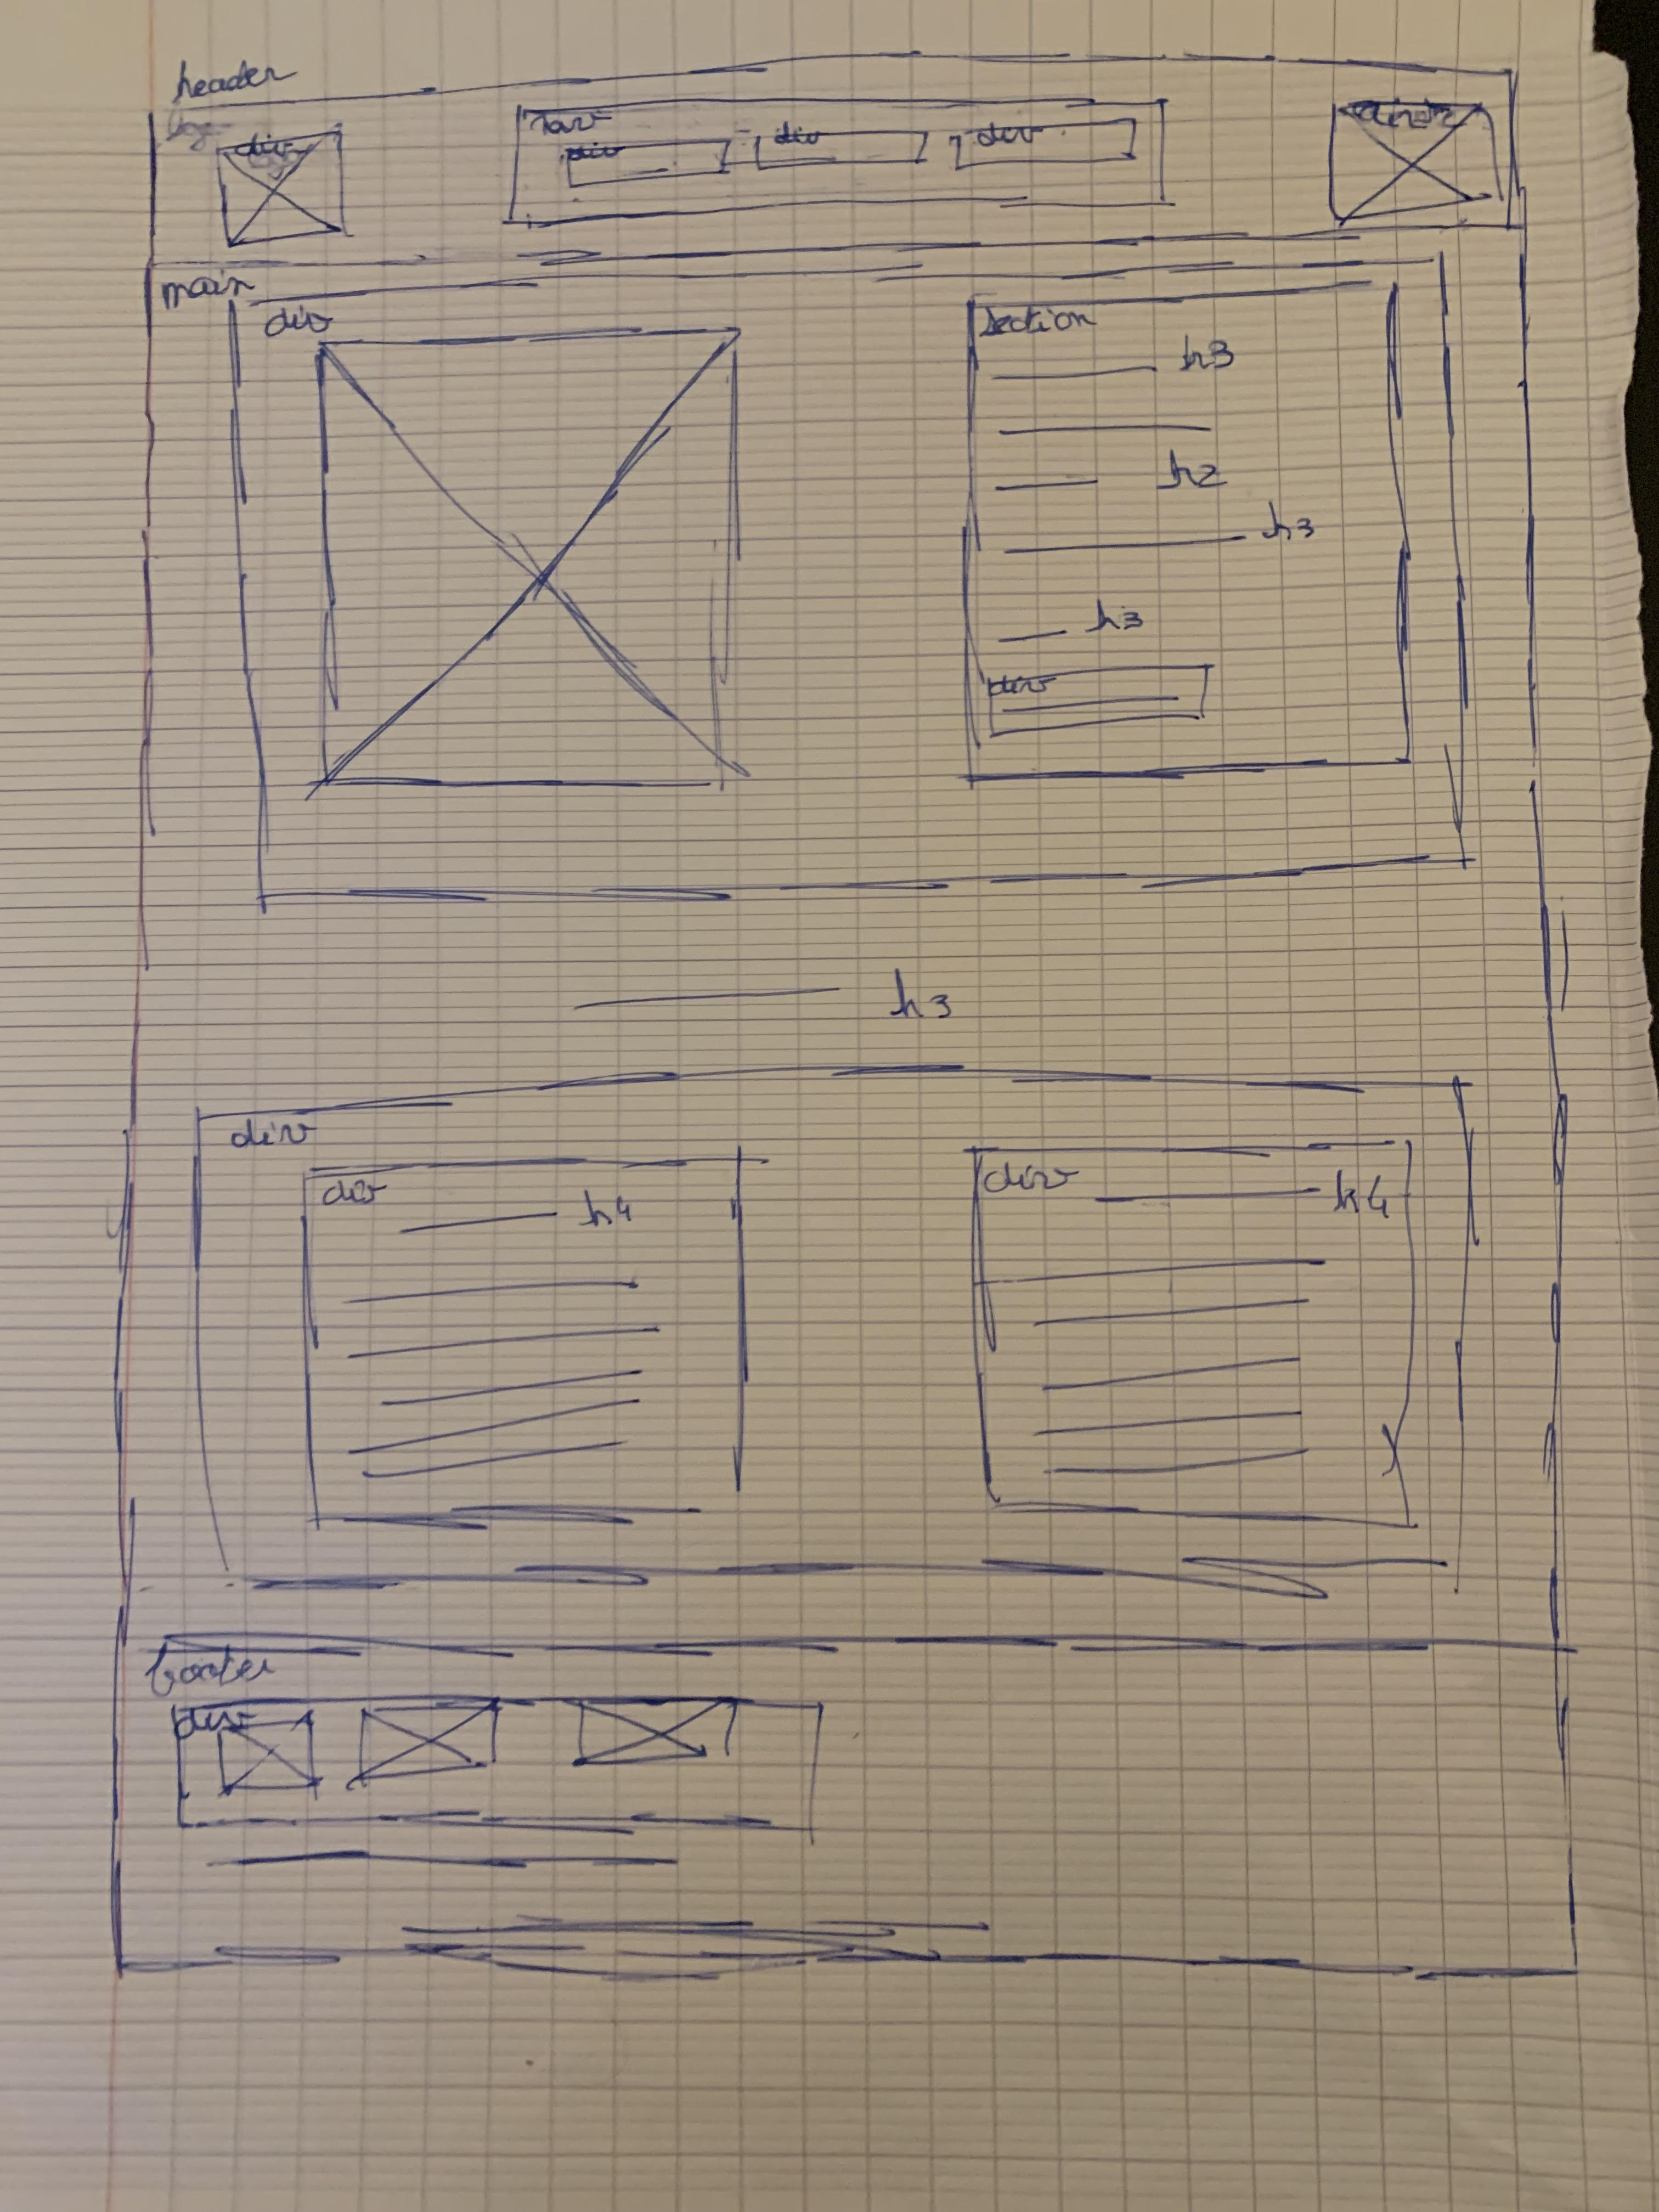 header
div
nav
div
div
div
main
div
section
h3
h2
h3
h3
div
h3
div
div
h4
div
h4
footer
div